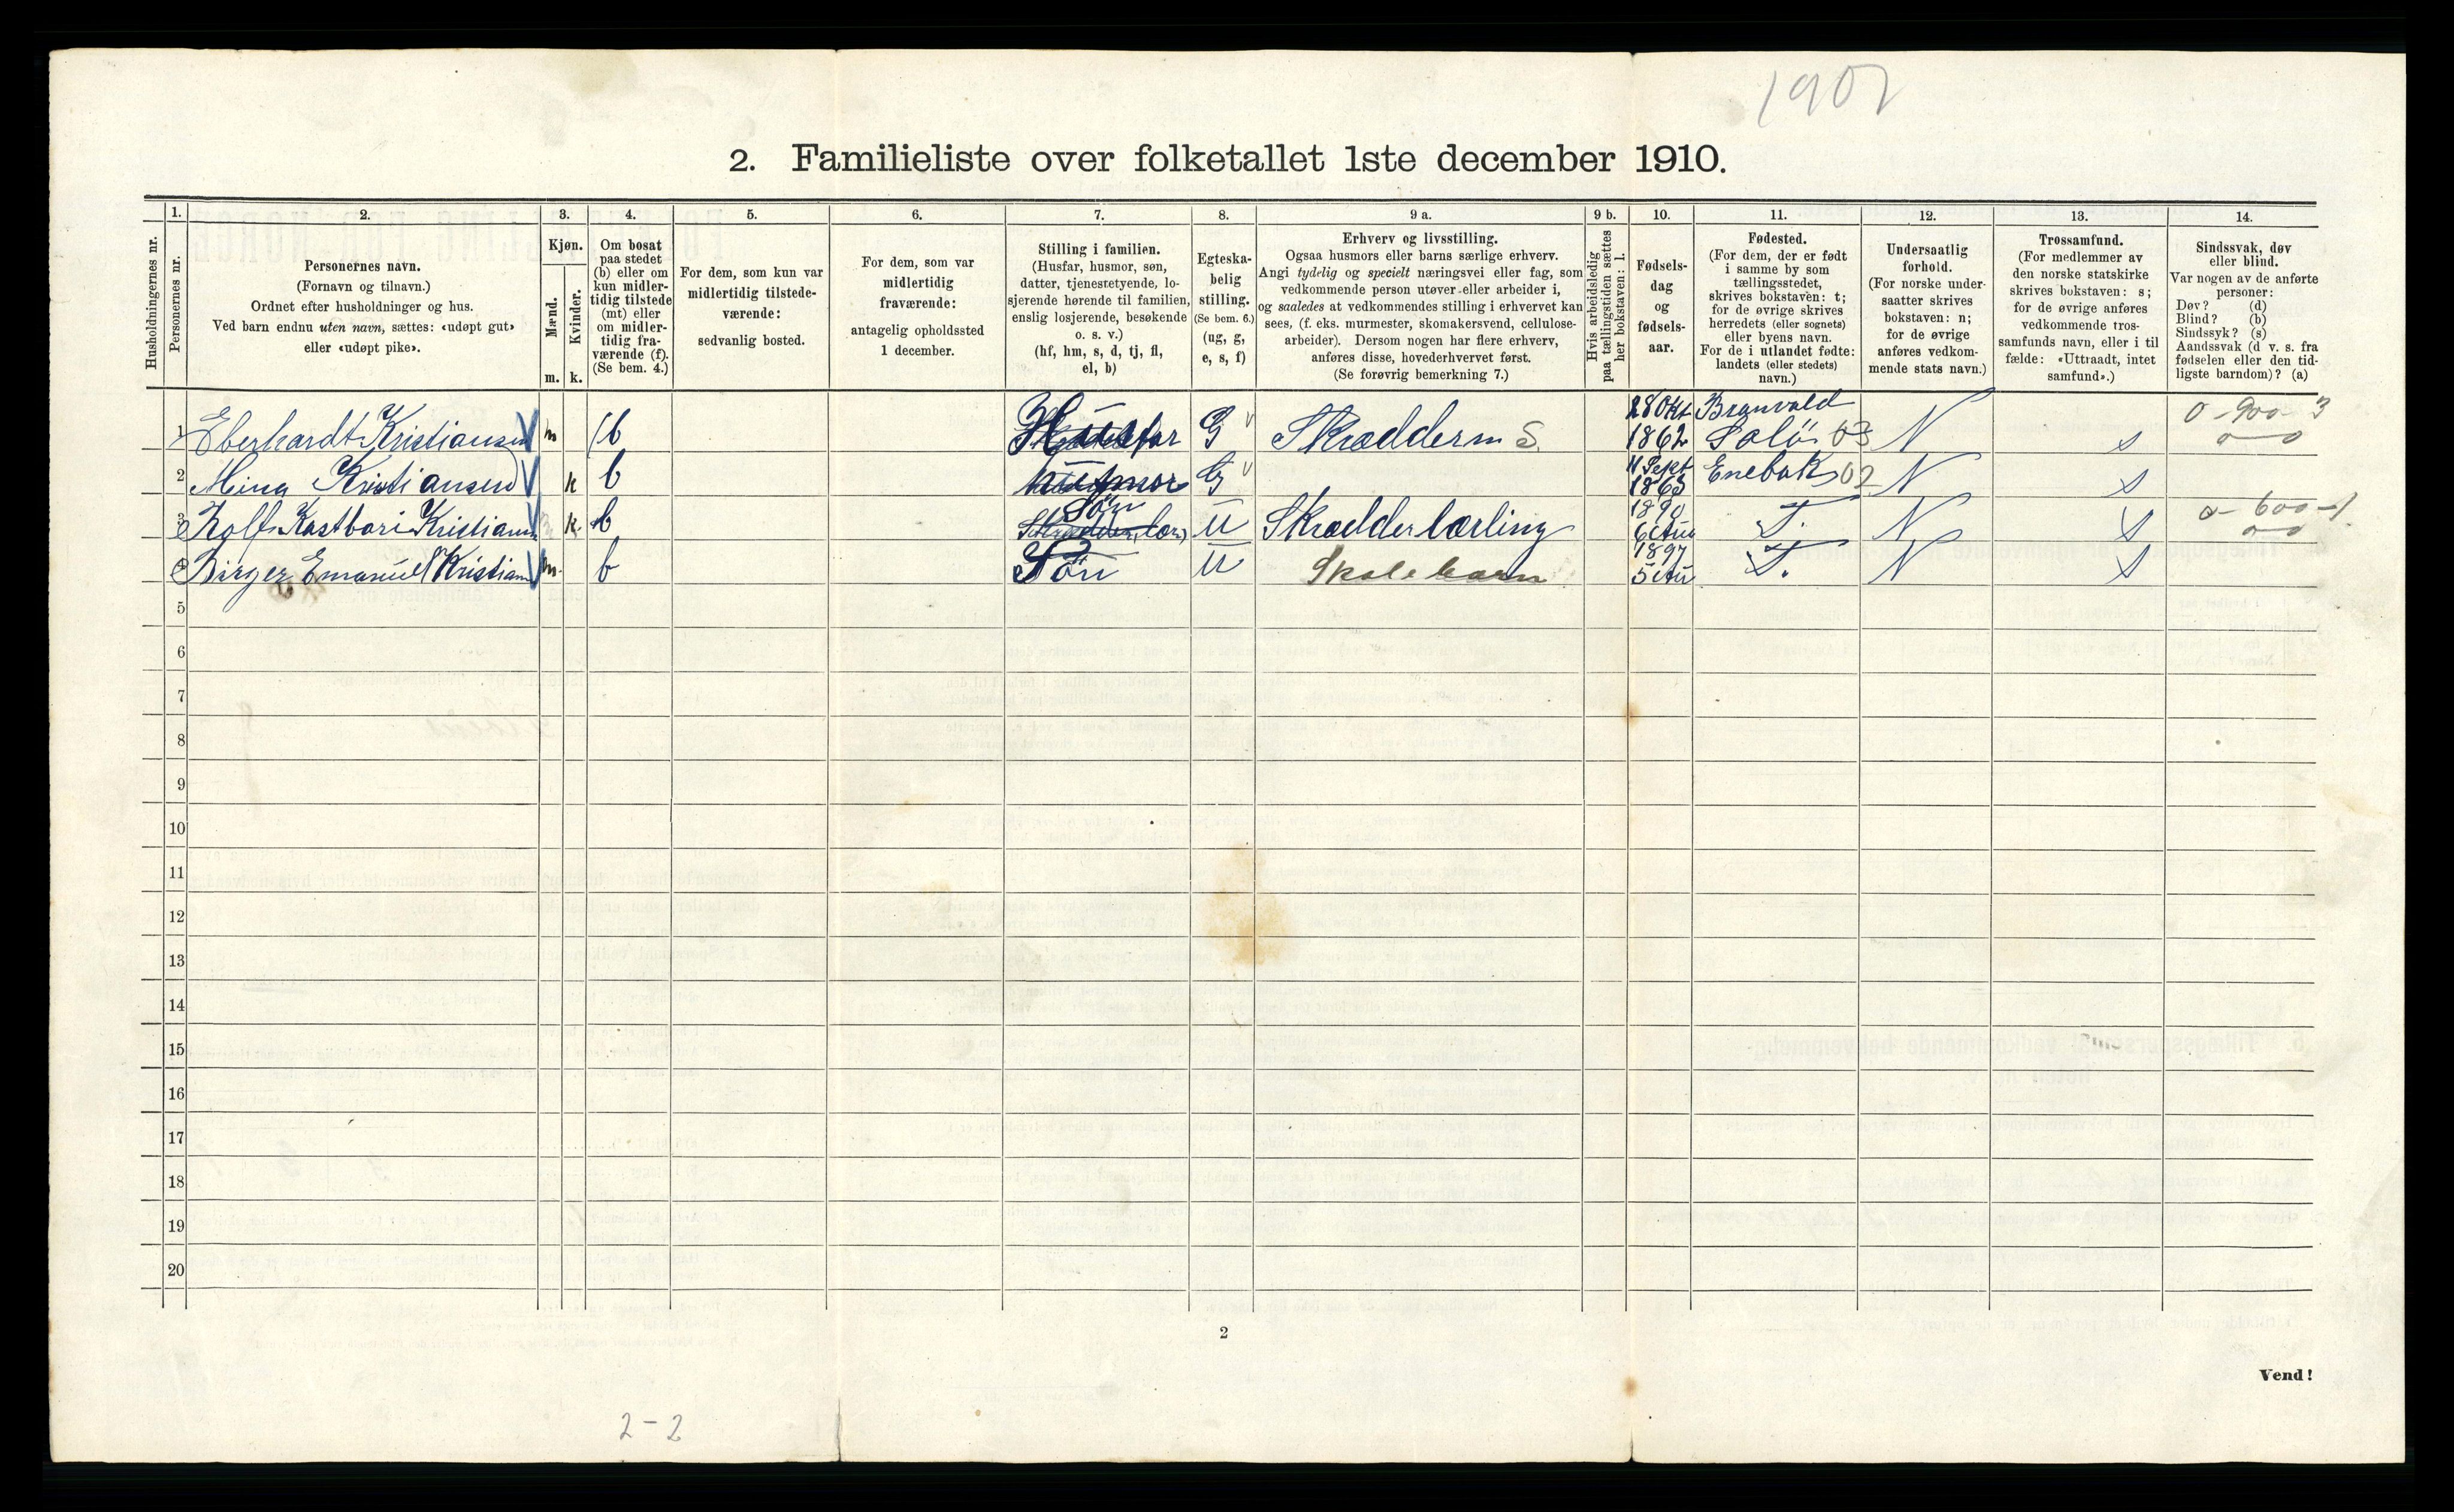 1907
2. Familieliste over folketallet 1ste december 1910.
Husholdningernes nr.
1.
Personernes nr.
2.
Personernes navn.
(Fornavn og tilnavn.)
Ordnet efter husholdninger og hus.
Ved barn endnu uten navn, sættes: «udøpt gut»
eller «udøpt pike».
3.
Kjøn.
Mænd.
Kvinder.
m. k.
4.
Om bosat
paa stedet
(b) eller om
kun midler-
tidig tilstede
(mt) eller
om midler-
tidig fra-
værende (f).
(Se bem. 4.)
5.
For dem, som kun var
midlertidig tilstede-
værende:
sedvanlig bosted.
6.
For dem, som var
midlertidig
fraværende:
antagelig opholdssted
1 december.
7.
Stilling i familien.
(Husfar, husmor, søn,
datter, tjenestetyende, lo-
sjerende hørende til familien,
enslig losjerende, besøkende
o. s. v.)
(hf, hm, s, d, tj, fl,
el, b)
8.
Egteska-
belig
stilling.
(Se bem. 6.)
(ug, g,
e, s, f)
9 a.
Erhverv og livsstilling.
Ogsaa husmors eller barns særlige erhverv.
Angi tydelig og specielt næringsvei eller fag, som
vedkommende person utøver eller arbeider i,
og saaledes at vedkommendes stilling i erhvervet kan
sees, (f. eks. murmester, skomakersvend, cellulose-
arbeider). Dersom nogen har flere erhverv,
anføres disse, hovederhvervet først.
(Se forøvrig bemerkning 7.)
9 b.
Hvis arbeidsledig
paa tællingstiden sættes
her bokstaven: l.
10.
Fødsels-
dag
og
fødsels-
aar.
11.
Fødested.
(For dem, der er født
i samme by som
tællingsstedet,
skrives bokstaven: t;
for de øvrige skrives
herredets (eller sognets)
eller byens navn.
For de i utlandet fødte:
landets (eller stedets)
navn.)
12.
Undersaatlig
forhold.
(For norske under-
saatter skrives
bokstaven: n;
for de øvrige
anføres vedkom-
mende stats navn.)
13.
Trossamfund.
(For medlemmer av
den norske statskirke
skrives bokstaven: s;
for de øvrige anføres
vedkommende tros-
samfunds navn, eller i til
fælde: «Uttraadt, intet
samfund».)
14.
Sindssvak, døv
eller blind.
Var nogen av de anførte
personer:
Døv? (d)
Blind? (b)
Sindssyk? (s)
Aandssvak (d v. s. fra
fødselen eller den tid-
ligste barndom)? (a)
1 Eberhardt Kristiansen m b Husfar G Skrædderm S. 28 Okt 1862 Branvald Solör 03 N s 0-900-3
2 Mina Kristiansen k b husmor G 11 Sept 1863 Enebak 02 N s
3 Rolf Kristiansn k b Sön U Skrædderlærling 1890 6 Aug T. N s 0-600-1
4 Birger Emanuel Kristian m b Sön U Skolebarn 1897 5 Au T. N s
5
6
7
8
9
10
11
12
13
14
15
16
17
18
19
20
2
Vend!
2-2